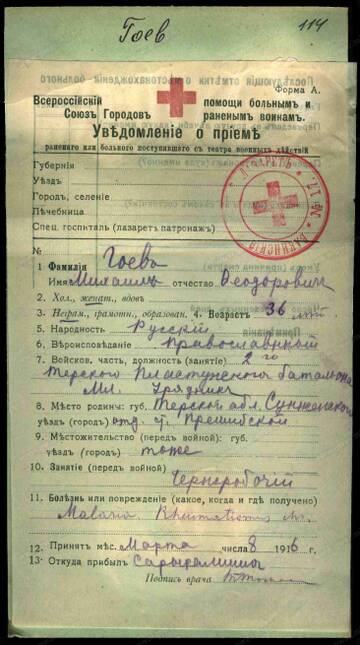 Гоев
114
Форма А.
Всероссійскій помощи больнымъ и
Союзъ Городовъ раненымъ воинамъ.
Увѣдомленіе о пріемѣ
раненаго или больного поступившаго съ театра военныхъ дѣйствій
Губернія
Уѣздъ
Городъ, селеніе
Лѣчебница
Спец. госпиталь (лазаретъ патронажъ)
ЛАЗАРЕТЪ № 17
№
1 Фамилія Гоевъ
Имя Михаилъ отчество Ѳеодоровичъ
2. Хол., женат. вдовъ
3. Неграм., грамотн., образован. 4. Возрастъ 36 лѣтъ
5. Народность Русскій
6. Вѣроисповѣданіе Православный
7. Войсков. часть, должность (занятіе) 2го
Терского Пластунского баталіона
Мл. Урядникъ
8. Мѣсто родины: губ. Терской обл. Сунженскаго
уѣздъ (городъ) отд. ст. Пришибской
9. Мѣстожительство (передъ войной): губ.
уѣздъ (городъ) тоже
10. Занятіе (передъ войной)
Чернорабочій
11. Болѣзнь или поврежденіе (какое, когда и гдѣ получено)
Malaria. Rheumatismus
12. Принятъ мѣс. Марта числа 8 1916 г.
13. Откуда прибылъ Сарыкамыша
Подпись врача